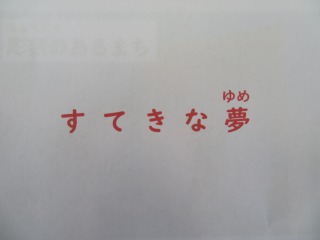 ゆめ
すてきな夢